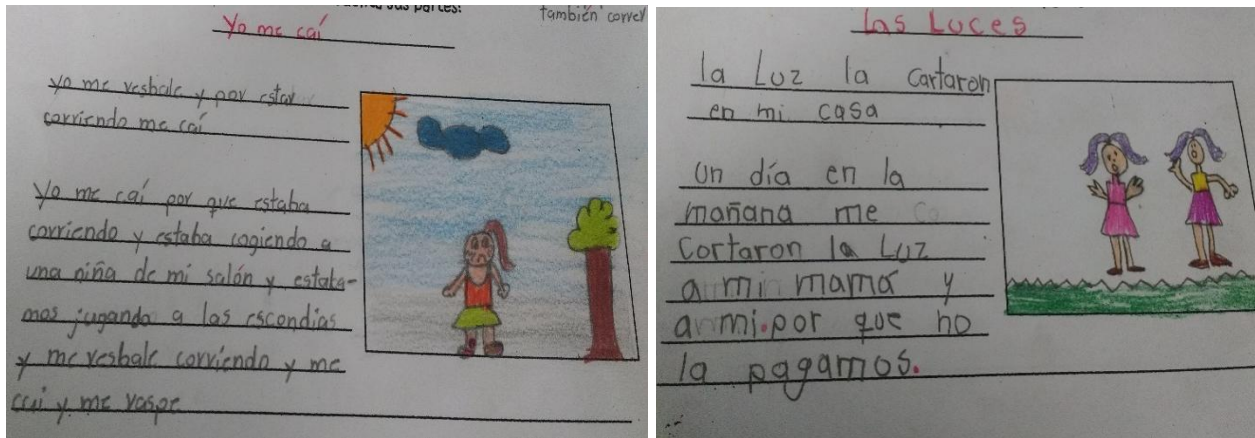 sus partes!
también
Yo me caí
yo me resbale y por estar
corriendo me caí
Yo me caí por que estaba
corriendo y estaba cogiendo a
una niña de mi salón y estaba-
mos jugando a las escondias
y me resbale corriendo y me
cai y me raspe
Las Luces
la Luz la cartaron
en mi casa
Un día en la
mañana me
cortaron la Luz
a mi mamá y
a mi.por que no
la pagamos.